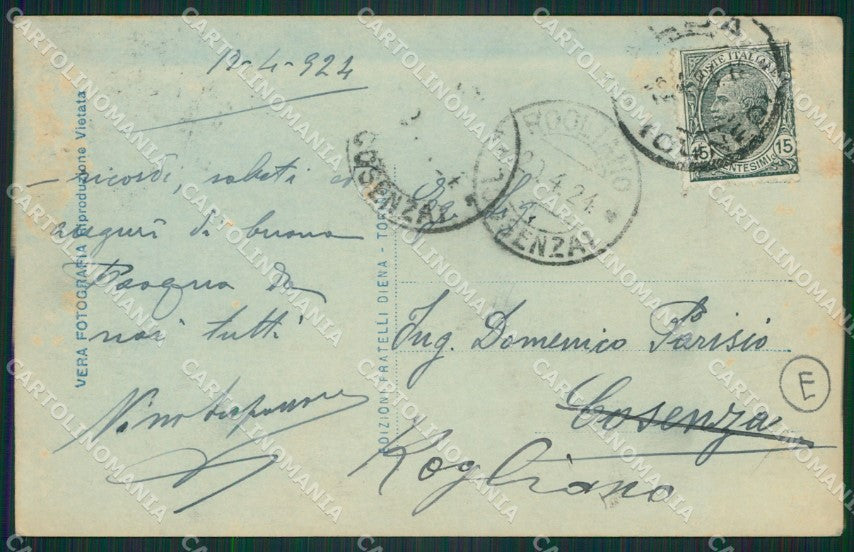 13-4-924
ricordi, saluti ed
auguri di buona
Pasqua da
noi tutti
Ing. Domenico Parisio
Cosenza
Rogliano
VERA FOTOGRAFIA Riproduzione Vietata
EDIZIONI FRATELLI DIENA - TOR
COSENZA
ROGLIANO
20.4.24
COSENZA
POSTE ITALIANE
15 15
CENTESIMI
E
CARTOLINOMANIA